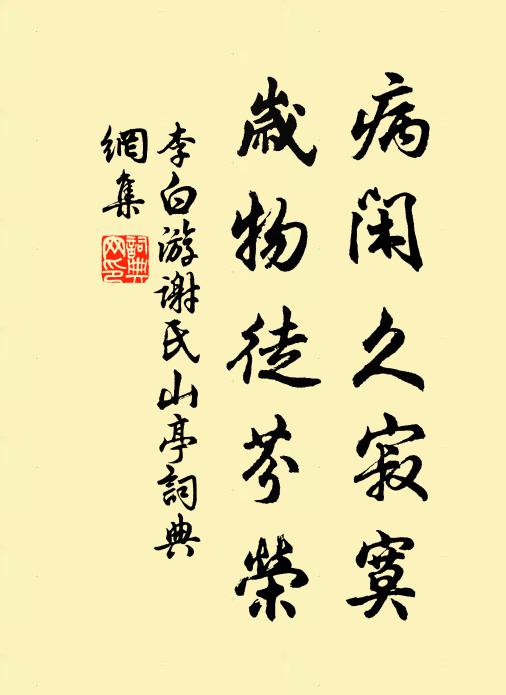 病閑久寂寞
歲物徒芬榮
李白游謝氏山亭詞典
網集
詞典
网印